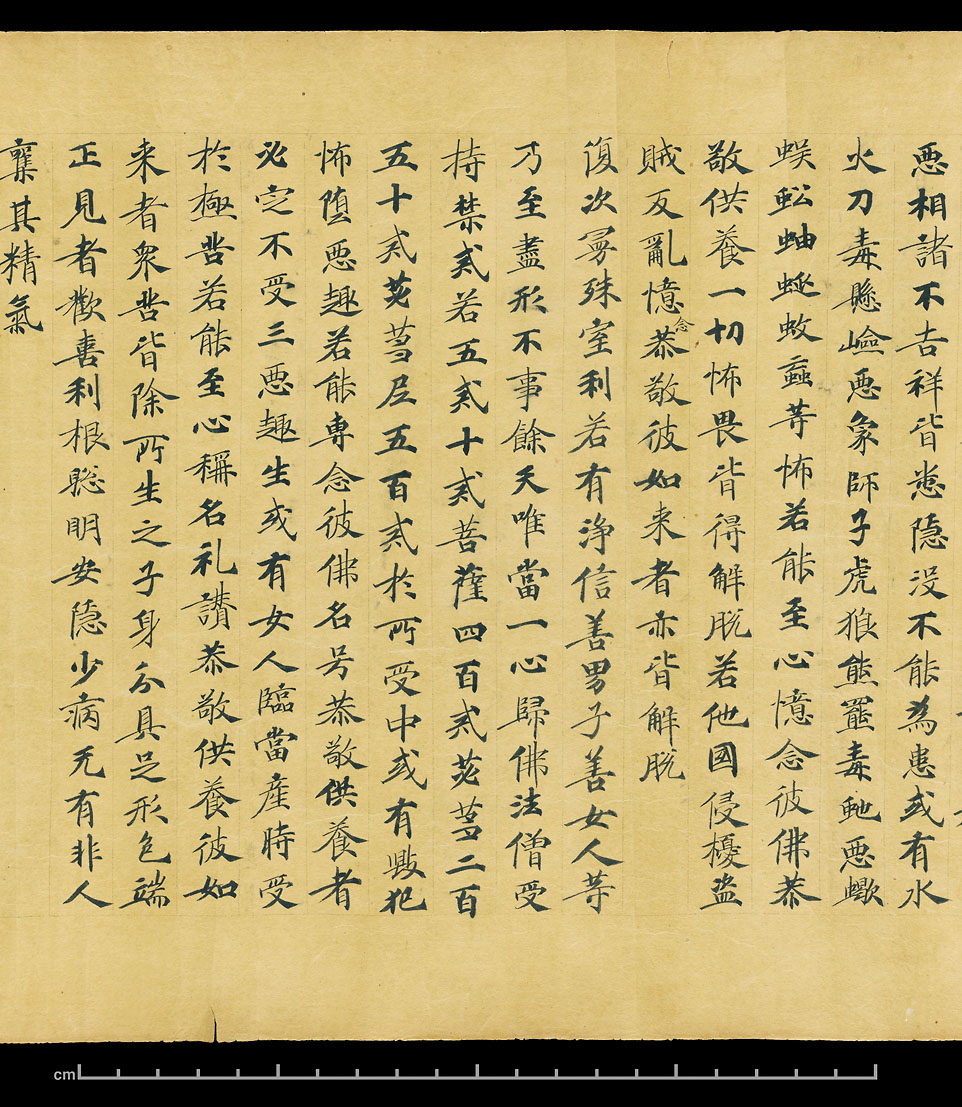 悪相諸不吉祥皆悉隱没不能為患或有水
火刀毒懸嶮悪象師子虎狼熊羆毒虵悪蠍
蜈蚣蚰蜒蚊蝱等怖若能至心憶念彼佛恭
敬供養一切怖畏皆得解脱若他國侵擾盗
賊反亂憶念恭敬彼如来者亦皆解脱
復次曼殊室利若有淨信善男子善女人等
乃至盡形不事餘天唯當一心歸佛法僧受
持禁戒若五戒十戒菩薩四百戒苾蒭二百
五十戒苾蒭尼五百戒於所受中或有毀犯
怖墮悪趣若能專念彼佛名号恭敬供養者
必定不受三悪趣生或有女人臨當産時受
於極苦若能至心稱名礼讃恭敬供養彼如
来者衆苦皆除所生之子身分具足形色端
正見者歡喜利根聡明安隱少病无有非人
奪其精氣
cm